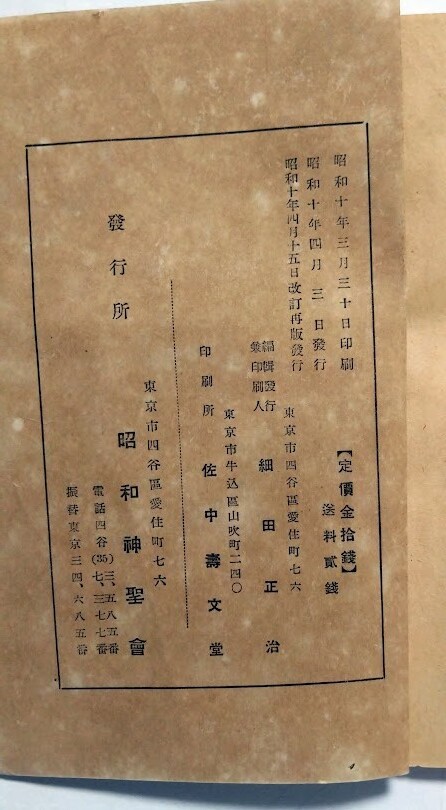 昭和十年三月三十日印刷
昭和十年四月三日發行
昭和十年四月十五日改訂再版發行
【定價金拾錢】
送料貳錢
東京市四谷區愛住町七六
編輯發行
兼印刷人
細田正治
東京市牛込區山吹町二四〇
印刷所 佐中壽文堂
東京市四谷區愛住町七六
發行所 昭和神聖會
電話四谷(35)三、五八五番
七、三七七番
振替東京三四、六八五番